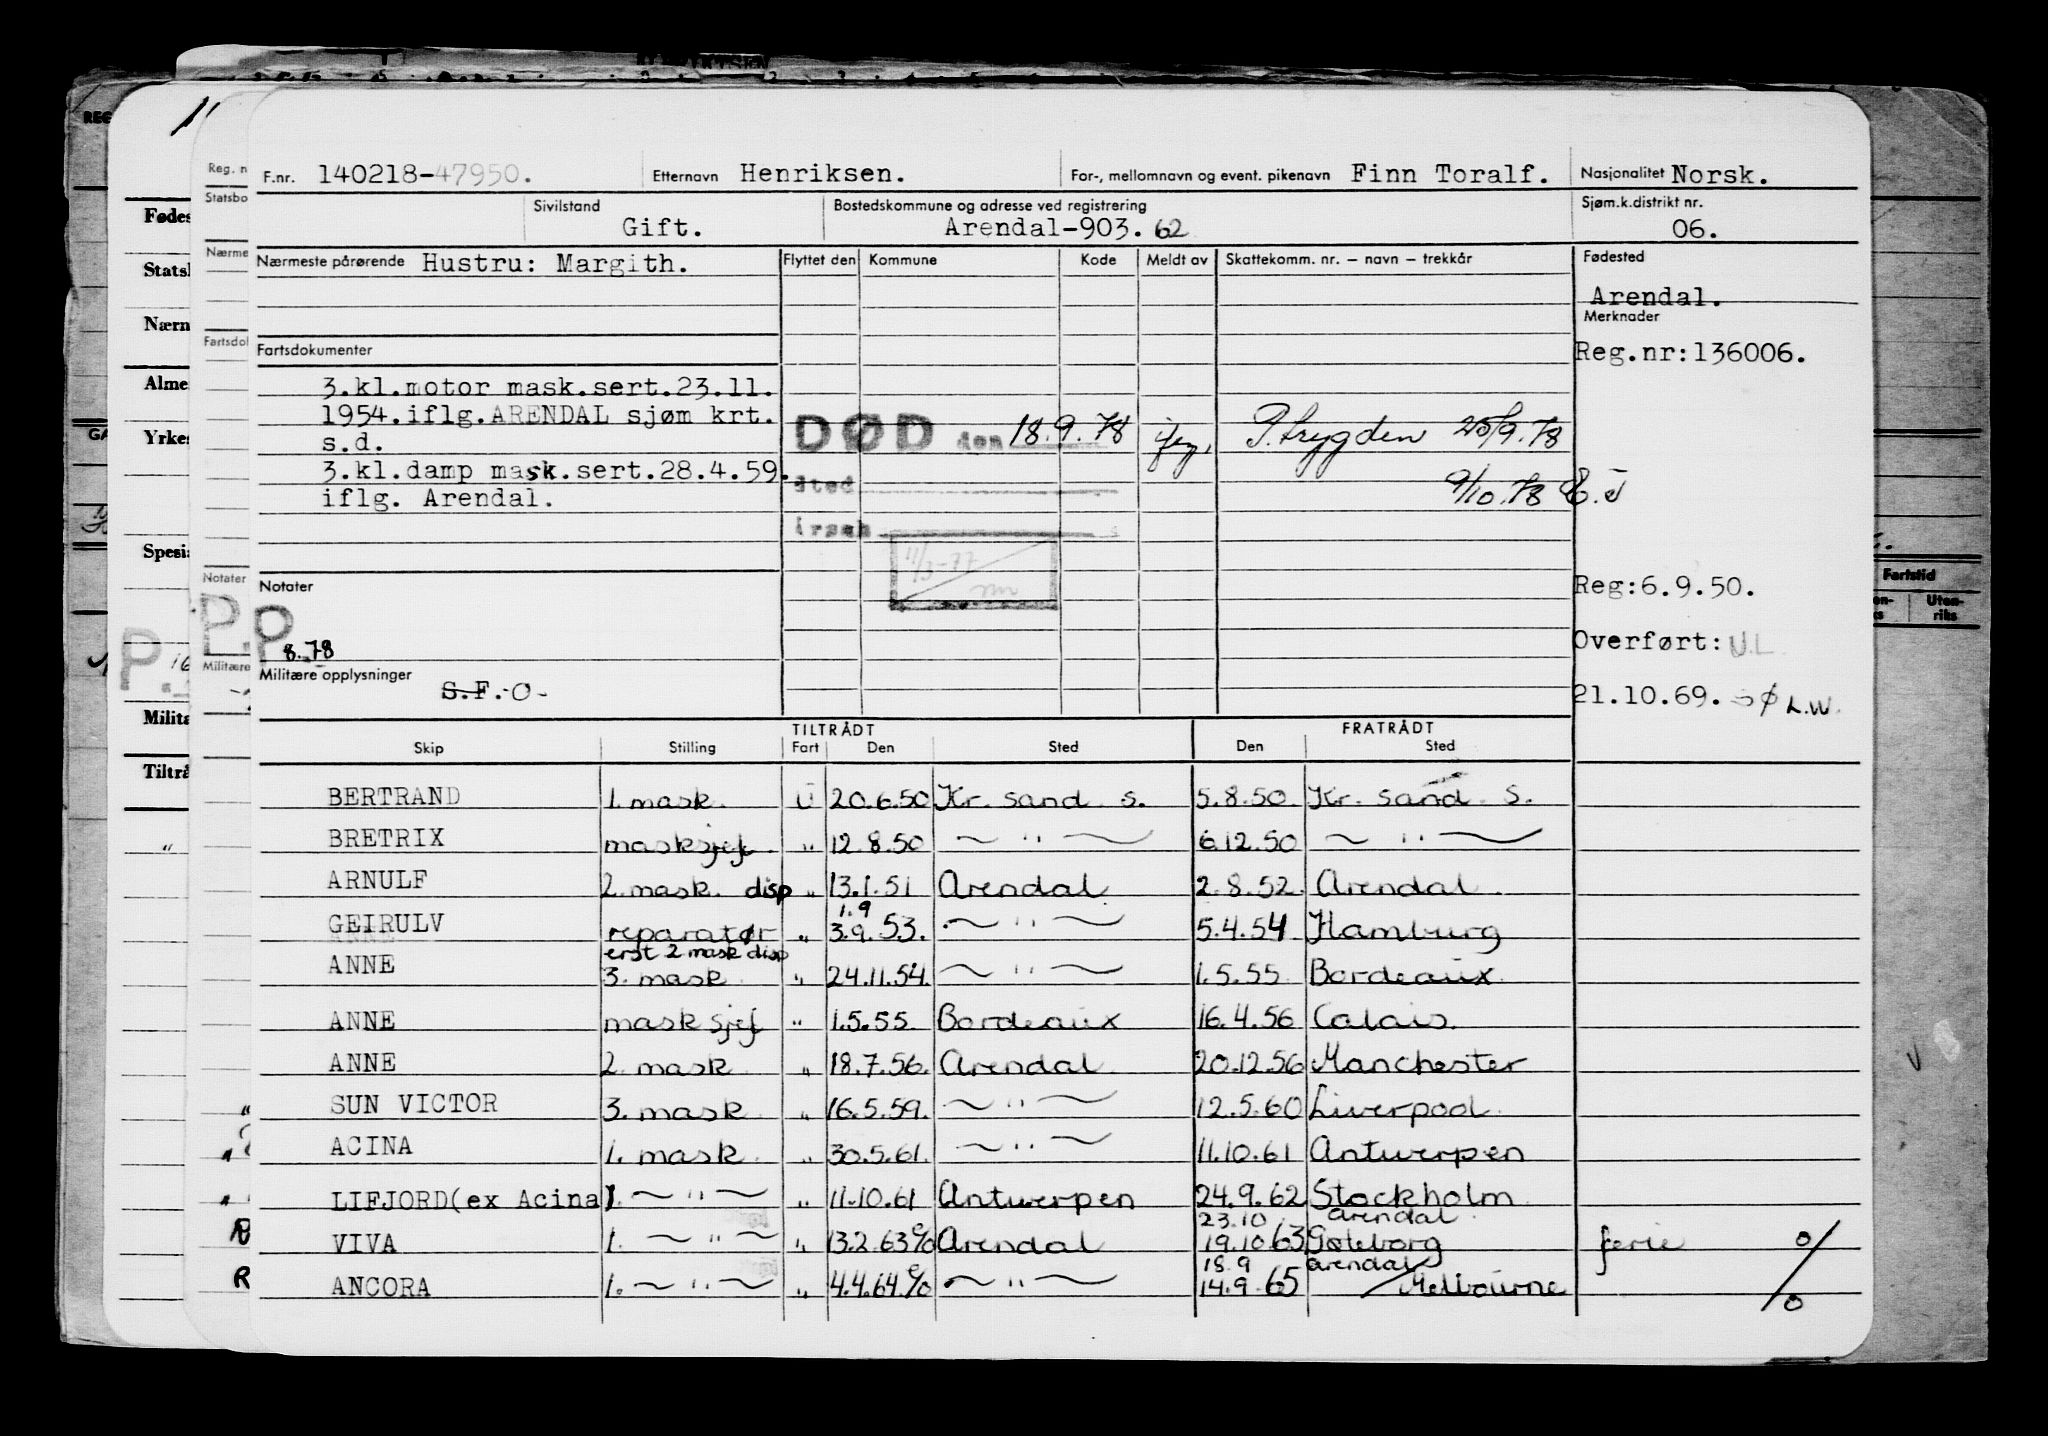 F.nr. 140218-47950. Etternavn Henriksen. For-, mellomnavn og event. pikenavn Finn Toralf. Nasjonalitet Norsk.
Sivilstand Gift. Bostedskommune og adresse ved registrering Arendal-903. 62 Sjøm.k.distrikt nr. 06.
Nærmeste pårørende Hustru: Margith. Flyttet den Kommune Kode Meldt av Skattekomm. nr. – navn – trekkår Fødested
Arendal.
Merknader
Fartsdokumenter Reg.nr:136006.
3.kl.motor mask.sert.23.11.
1954.iflg.ARENDAL sjøm krt.
s.d.
DØD den 18.9.78 P.trygden 25/9.78
3.kl.damp mask.sert.28.4.59.
sted 9/10.78
iflg. Arendal.
årsak
11/3-77
Notater Reg:6.9.50.
8.78 Overført: U.L.
Militære opplysninger S.F.-O-
21.10.69. L.W.
TILTRÅDT FRATRÅDT
Skip Stilling Fart Den Sted Den Sted
BERTRAND 1. mask. U 20.6.50 Kr. sand. s. 5.8.50. Kr. sand. S.
BRETRIX masksjef. " 12.8.50 — " — 6.12.50 — " —
ARNULF 2. mask. disp " 13.1.51 Arendal 2.8.52. Arendal.
1.9
GEIRULV reparatør " 3.9.53. — " — 5.4.54 Hamburg
erst 2 mask disp
ANNE 3. mask. " 24.11.54. — " — 1.5.55. Bordeaux.
ANNE mask sjef " 1.5.55. Bordeaux 16.4.56 Calais.
ANNE 2. mask " 18.7.56. Arendal. 20.12.56 Manchester
SUN VICTOR 3. mask " 16.5.59. — " — 12.5.60 Liverpool.
ACINA 1. mask. " 30.5.61. — " — 11.10.61 Antwerpen
LIFJORD(ex Acina) 1. — " — " 11.10.61 Antwerpen 24.9.62 Stockholm.
23.10 arendal
VIVA 1. — " — " 13.2.63 Arendal 19.10.63 Gøteborg ferie o/o
18.9 arendal
ANCORA 1. — " — " 4.4.64 — " — 14.9.65 Melbourne
Reg. n
Statsbo
Nærme
Fartsdol
Notater
Militære
Fødes
Statsl
Nærn
Alme
Yrkes
Spesia
Milita
Tiltrå
Fartstid
Uten-
riks